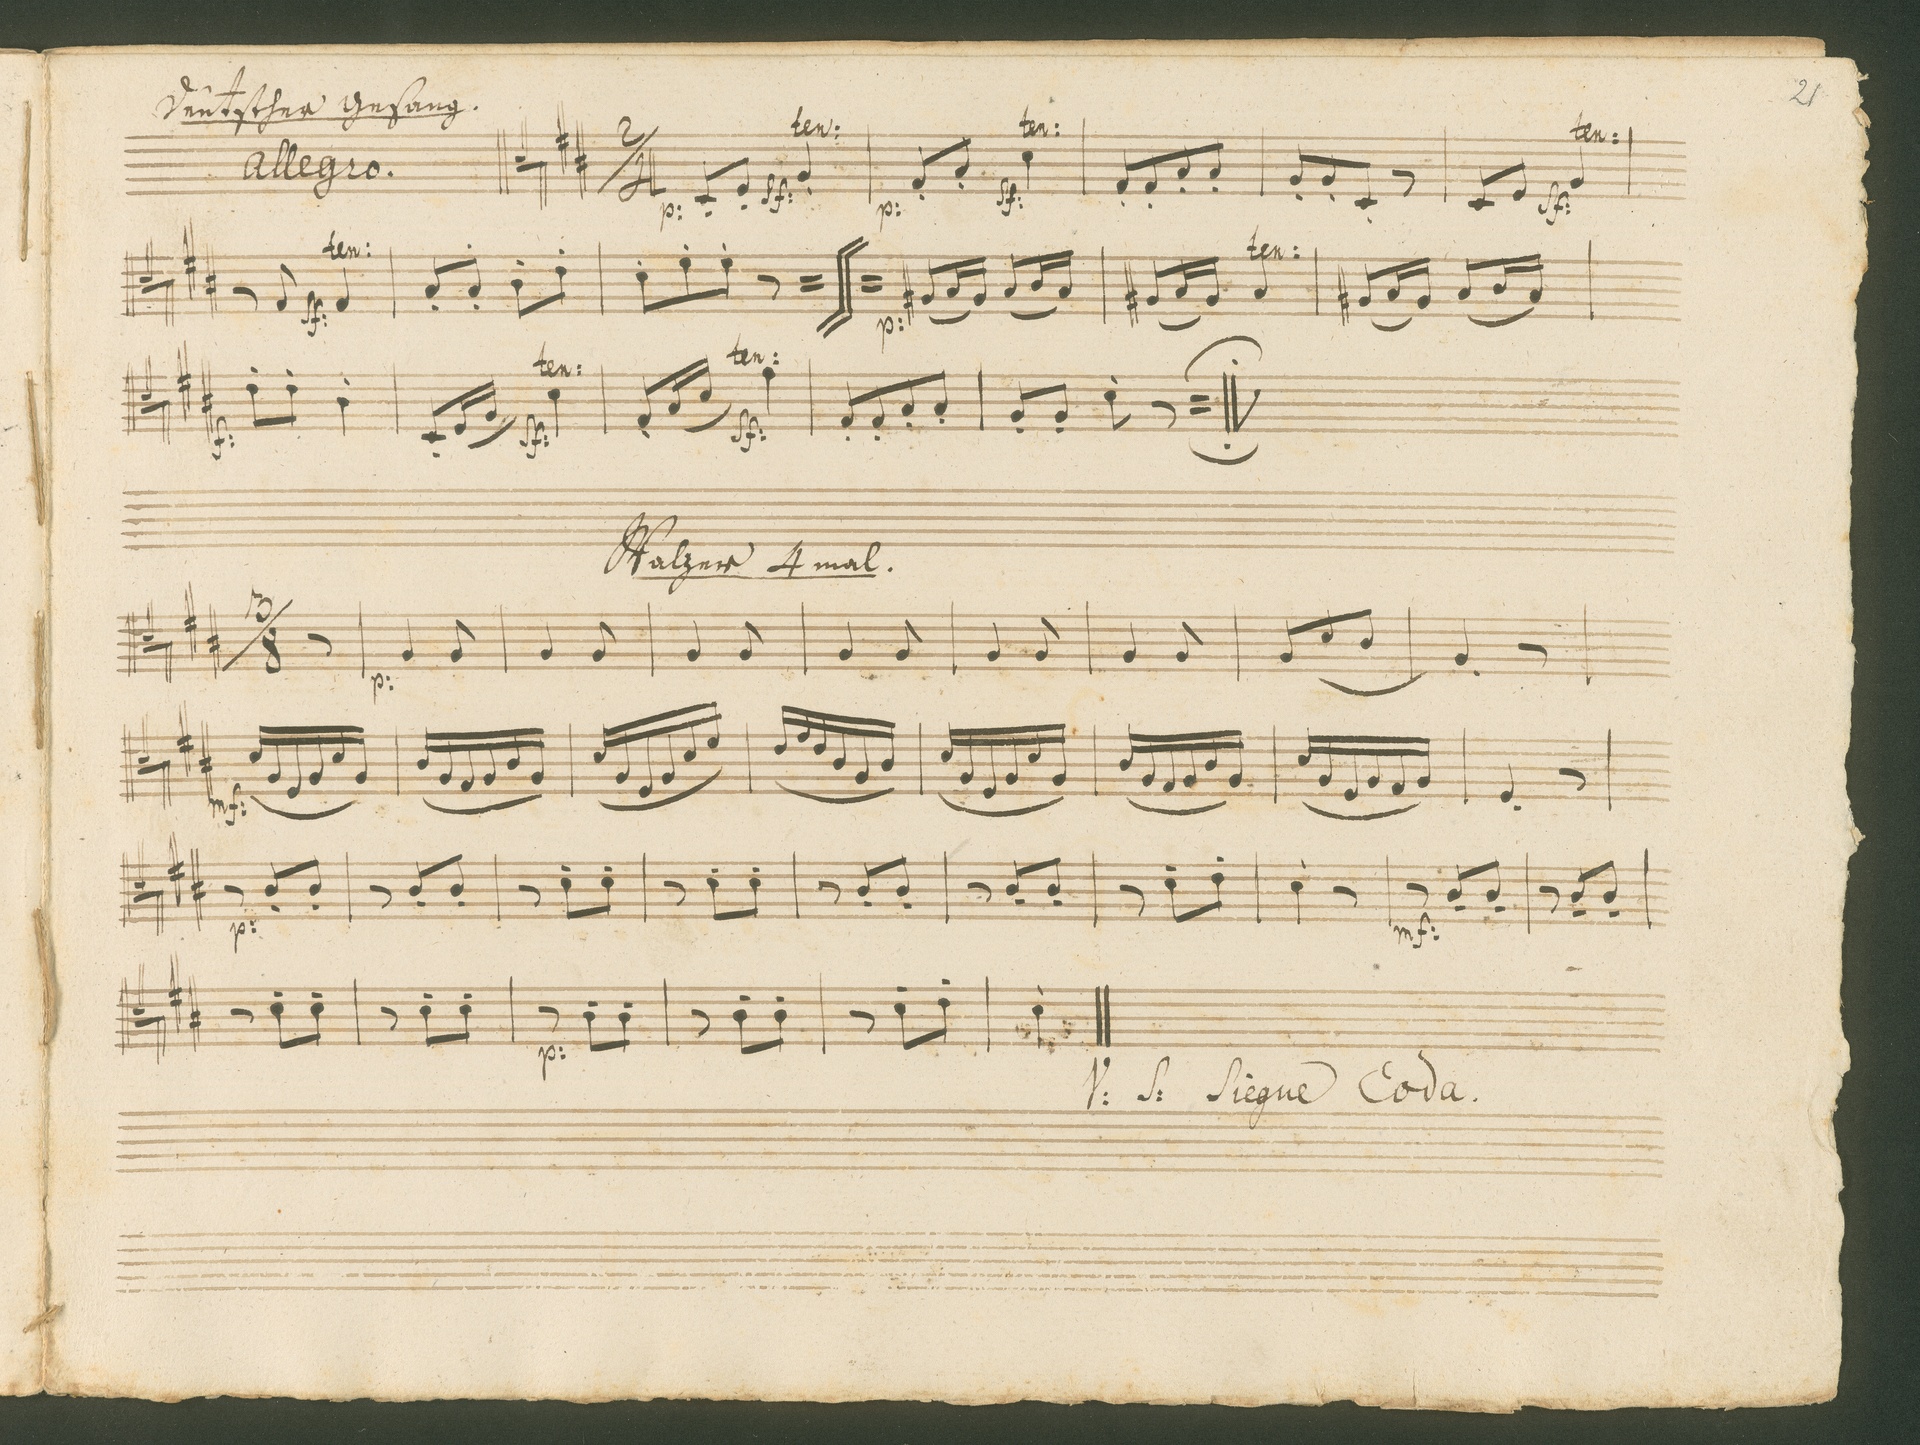 21
Deutscher Gesang.
Allegro.
2/4
ten: ten: ten:
p: sf: p: sf: sf:
ten: ten:
sf: p:
ten: ten:
f: sf: sf:
Walzer 4 mal.
3/8
p:
mf:
p: mf:
p:
V: S: Siegue Coda.